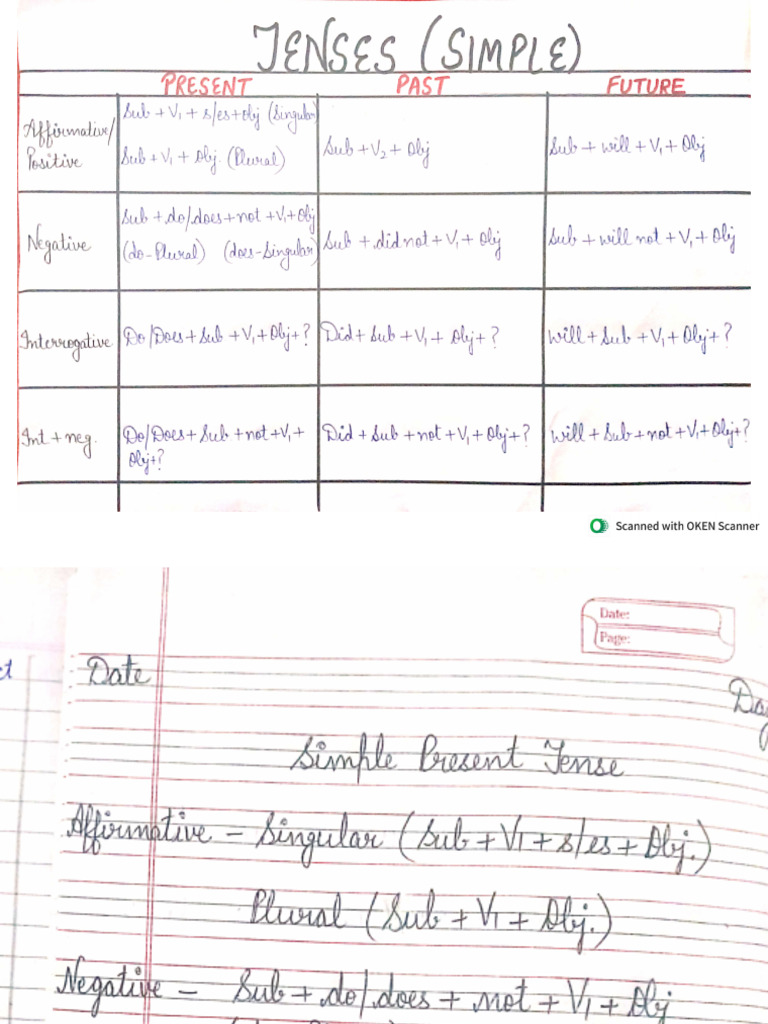 TENSES (SIMPLE)
PRESENT PAST FUTURE
Affirmative/
Positive
Sub + V1 + s/es + Obj (Singular)
Sub + V1 + Obj. (Plural)
Sub + V2 + Obj
Sub + will + V1 + Obj
Negative
Sub + do/does + not + V1 + Obj
(do-Plural) (does-Singular)
Sub + did not + V1 + Obj
Sub + will not + V1 + Obj
Interrogative
Do/Does + Sub + V1 + Obj + ?
Did + Sub + V1 + Obj + ?
Will + Sub + V1 + Obj + ?
Int + neg.
Do/Does + Sub + not + V1 +
Obj + ?
Did + Sub + not + V1 + Obj + ?
Will + Sub + not + V1 + Obj + ?
Scanned with OKEN Scanner
Date:
Page:
Date
Simple Present Tense
Affirmative – Singular (Sub + V1 + s/es + Obj.)
Plural (Sub + V1 + Obj.)
Negative – Sub + do/does + not + V1 + Obj